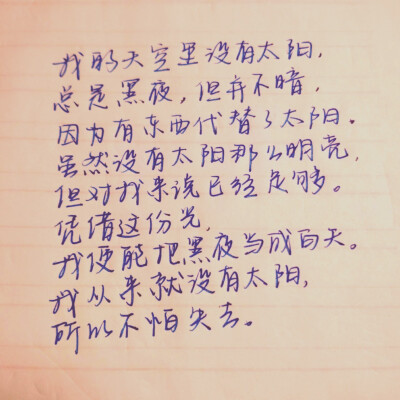 我的天空里没有太阳，
总是黑夜，但并不暗，
因为有东西代替了太阳。
虽然没有太阳那么明亮，
但对我来说已经足够。
凭借这份光，
我便能把黑夜当成白天。
我从来就没有太阳，
所以不怕失去。